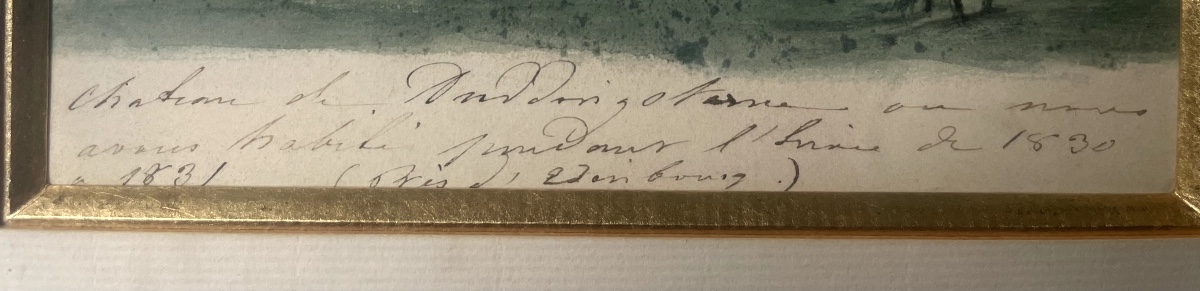 chateau de Duddingstone ou nous
avons habité pendant l'hiver de 1830
a 1831 (Près d'Edinbourg.)